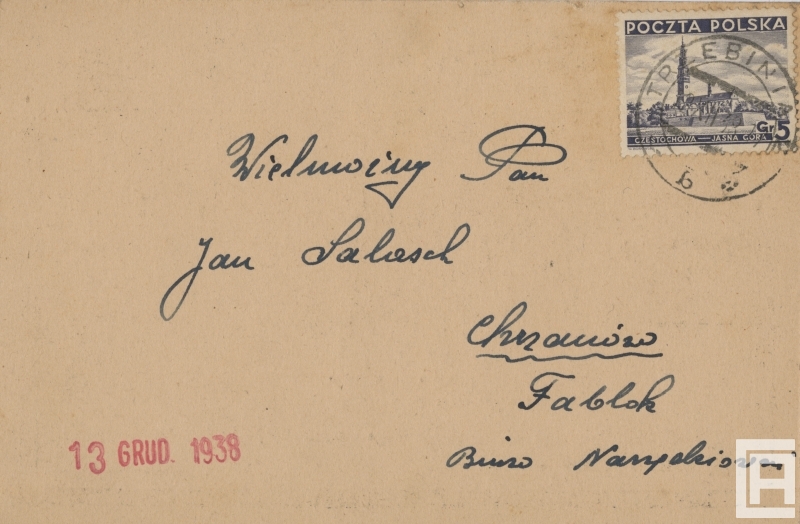 POCZTA POLSKA
TRZEBINI
Gr 5
CZĘSTOCHOWA – JASNA GÓRA
b
Wielmożny Pan
Jan Salasch
Chrzanów
Fablok
Biuro
13 GRUD. 1938